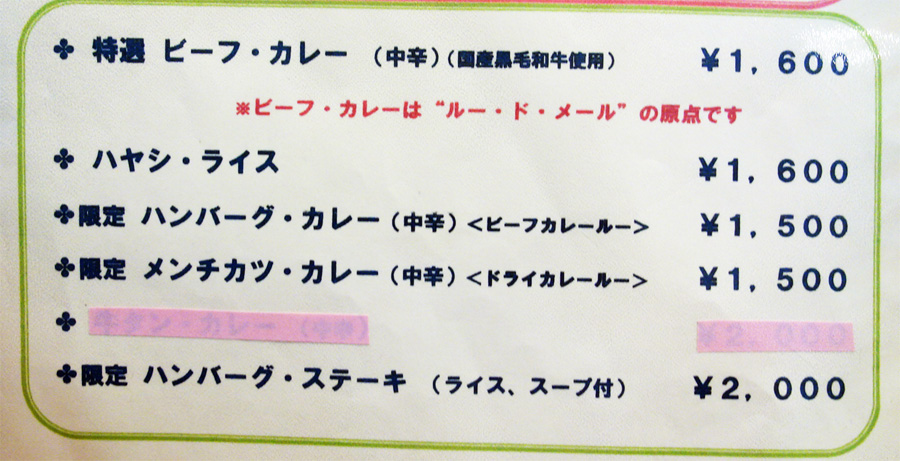 ✤ 特選 ビーフ・カレー （中辛）（国産黒毛和牛使用） ￥1，600
※ビーフ・カレーは“ルー・ド・メール”の原点です
✤ ハヤシ・ライス ￥1，600
✤限定 ハンバーグ・カレー（中辛）<ビーフカレールー> ￥1，500
✤限定 メンチカツ・カレー（中辛）<ドライカレールー> ￥1，500
✤ 牛タン・カレー （中辛） ￥2，000
✤限定 ハンバーグ・ステーキ （ライス、スープ付） ￥2，000